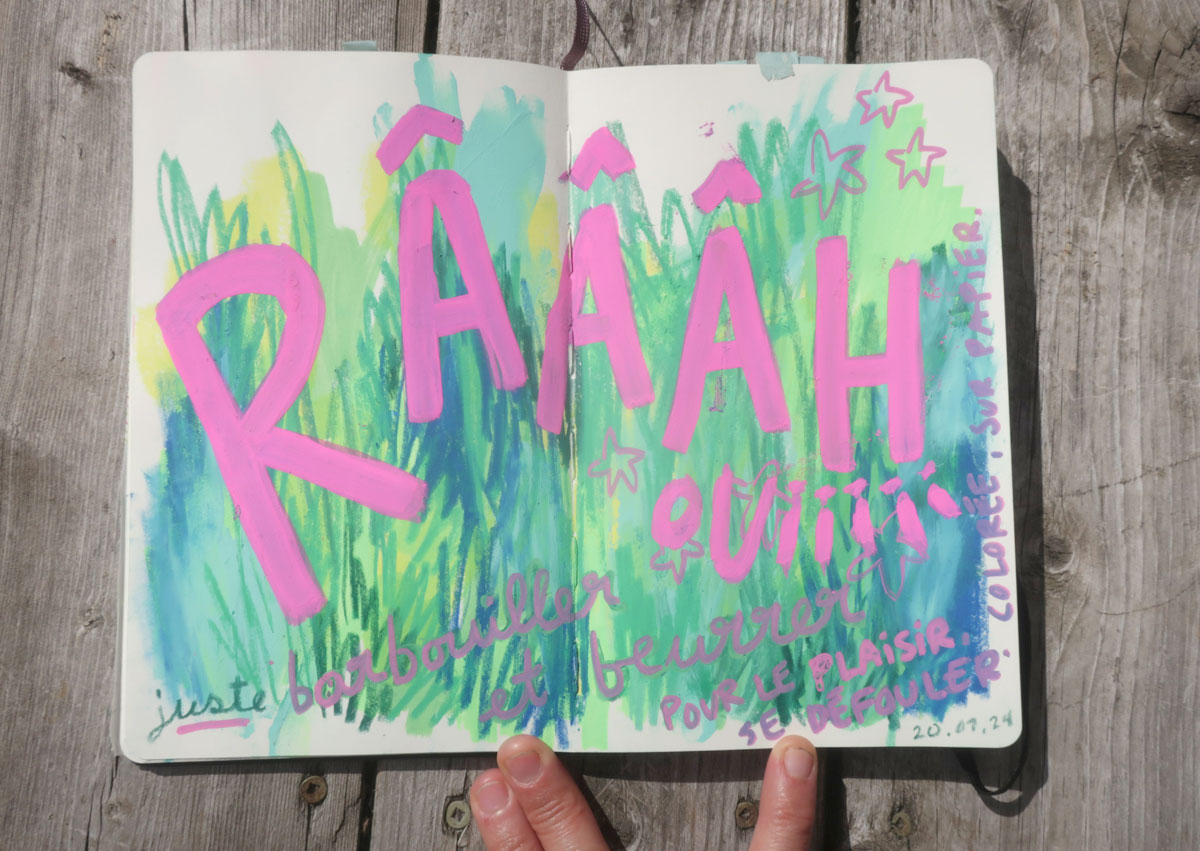 RÂÂÂH
OUiiiiii
juste barbouiller
et beurrer
POUR LE PLAiSiR.
SE DÉFOULER.
COLORÉE. SUR PAPiER.
20.07.24